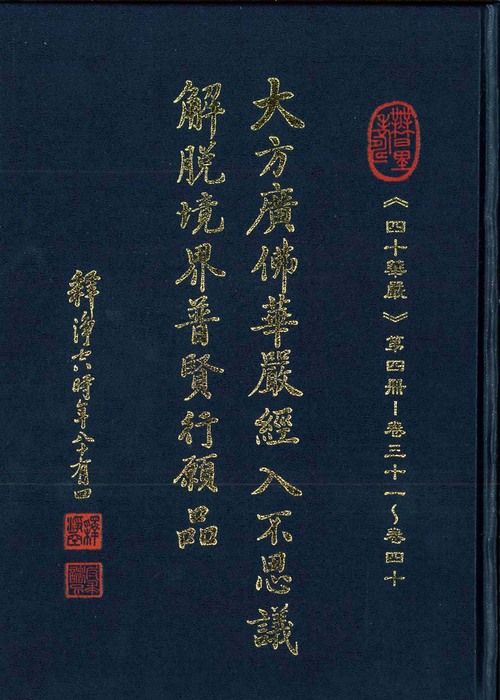 《四十華嚴》第四冊－卷三十一～卷四十
大方廣佛華嚴經入不思議
解脫境界普賢行願品
釋淨空時年八十有四